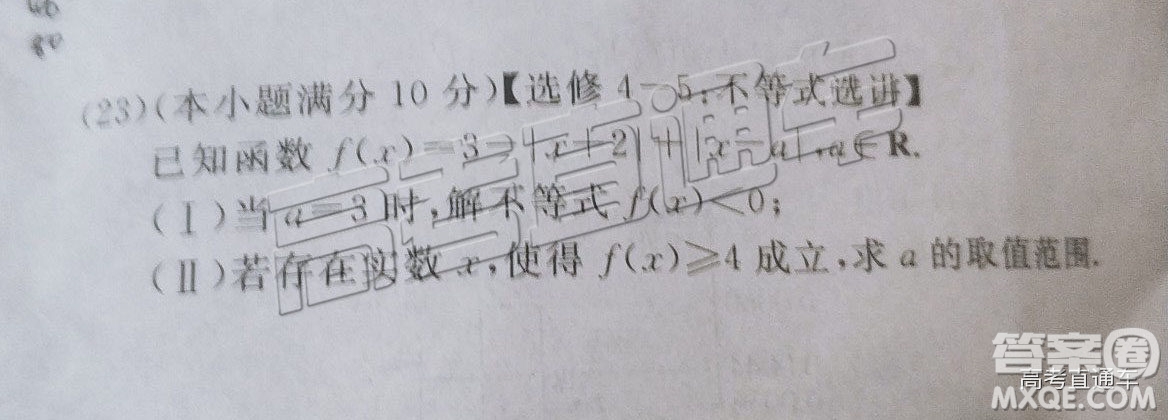 40
80
(23)(本小题满分 10 分)【选修 4-5:不等式选讲】
已知函数 f(x)=3-|x+2|+|x-a|,a∈R.
(Ⅰ)当 a=3 时,解不等式 f(x)<0;
(Ⅱ)若存在实数 x,使得 f(x)≥4 成立,求 a 的取值范围.
高考直通车
答案圈
高考直通车
MXQE.COM